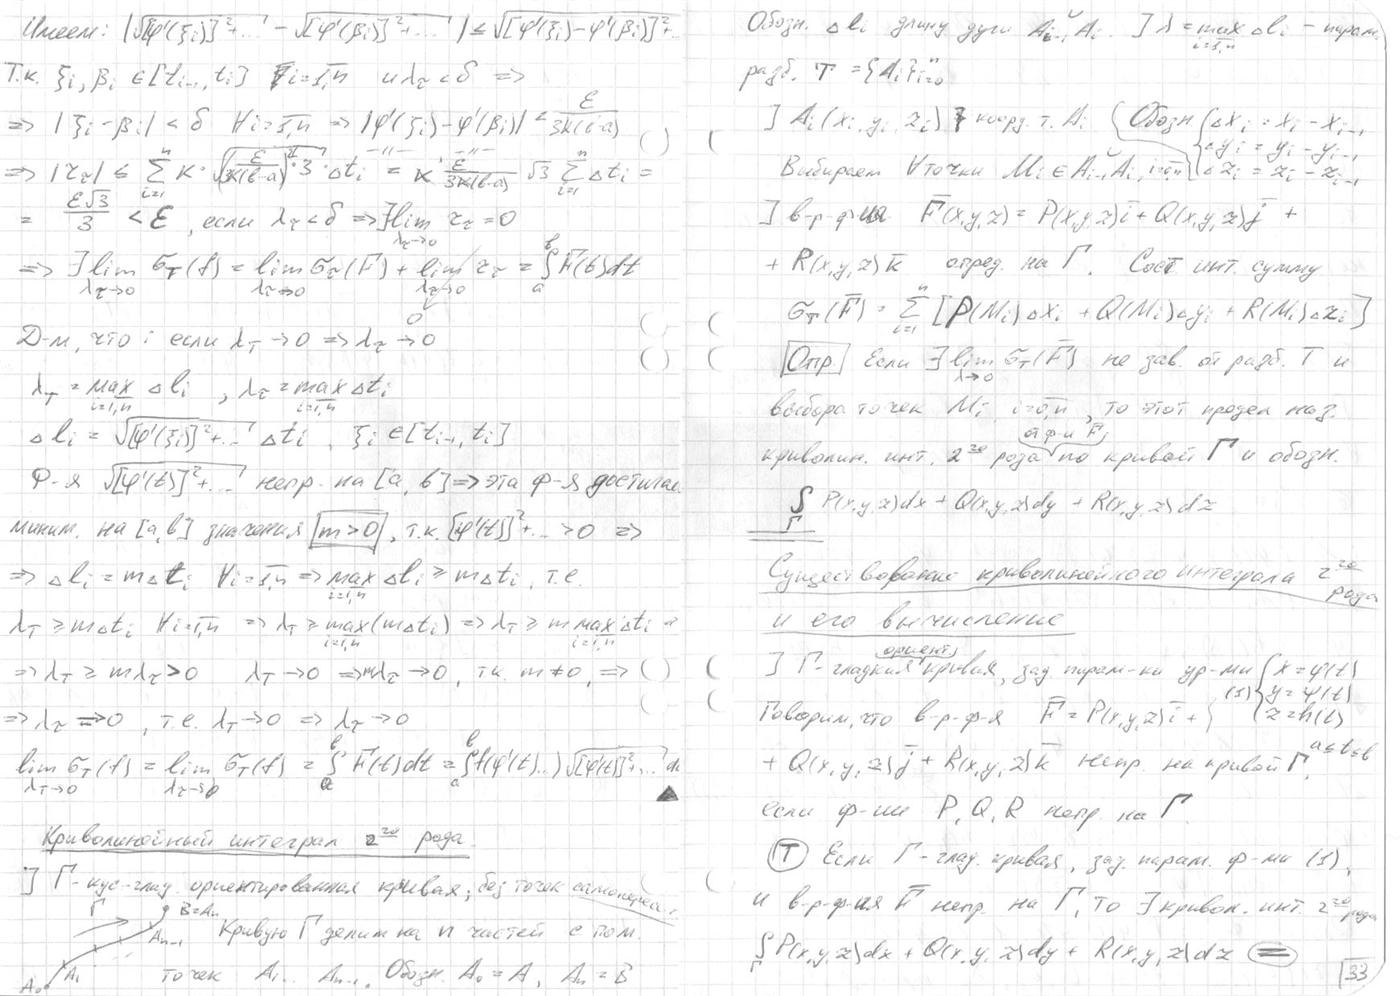 Имеем: |√([φ'(ξi)]²+...) - √([φ'(βi)]²+...)| ≤ √([φ'(ξi)-φ'(βi)]²+...
Т.к. ξi, βi ∈ [ti-1, ti] ∀i=1,n и λτ < δ =>
=> |ξi - βi| < δ ∀i=1,n => |φ'(ξi) - φ'(βi)| < ε/3k(b-a)
=> |ττ| ≤ Σ(i=1..n) k · √((ε/3k(b-a))²·3) · Δti = k ε/3k(b-a) √3 Σ(i=1..n) Δti =
= ε√3/3 < ε, если λτ < δ => ∃lim(λτ→0) ττ = 0
=> ∃lim(λτ→0) σT(f) = lim(λτ→0) στ(F) + lim(λτ→0) ττ = ∫(a..b) F(t)dt
0
Д-м, что: если λT → 0 => λτ → 0
λT = max(i=1,n) Δli , λτ = max(i=1,n) Δti
Δli = √([φ'(ξi)]²+...) Δti ξi ∈ [ti-1, ti]
Ф-я √([φ'(t)]²+...) непр. на [a, b] => эта ф-я достигае
миним. на [a,b] значения m>0, т.к. [φ'(t)]²+... >0 =>
=> Δli = mΔti ∀i=1,n => max(i=1,n) Δli ≥ mΔti, т.е.
λT ≥ mΔti ∀i=1,n => λT ≥ max(i=1,n)(mΔti) => λT ≥ m max(i=1,n) Δti =
=> λT ≥ mλτ > 0 λT → 0 => mλτ → 0, т.к. m ≠ 0, =>
=> λτ → 0, т.е. λT → 0 => λτ → 0
lim(λT→0) σT(f) = lim(λτ→0) σT(f) = ∫(a..b) F(t)dt = ∫(a..b) f(φ(t)...) √([φ'(t)]²+...) dt
Криволинейный интеграл 2го рода.
] Г- кус-глад. ориентированная кривая, без точек самоперес.
Г B=An An-1 Кривую Г делим на n частей с пом.
A0 A1 точек A1... An-1, Обозн. A0 = A, An = B
Обозн. Δli длину дуги Ai-1Ai. ] λ = max(i=1,n) Δli - парам.
разб. T = {Ai}(i=0..n)
] Ai (xi, yi, zi) коорд. т. Ai (Обозн { Δxi = xi - xi-1
Δyi = yi - yi-1
Выбираем ∀ точки Mi ∈ Ai-1Ai, i=0,n Δzi = zi - zi-1
] в-р-ф-ия F(x,y,z) = P(x,y,z)i + Q(x,y,z)j +
+ R(x,y,z)k опред. на Г. Сост инт. сумму
σT(F) = Σ(i=1..n) [P(Mi)Δxi + Q(Mi)Δyi + R(Mi)Δzi]
Опр Если ∃lim(λ→0) σT(F) не зав. от разб. T и
выбора точек Mi, i=0,n, то этот предел наз.
от ф-и F
криволин. инт. 2го рода по кривой Г и обозн.
∫Г P(x,y,z)dx + Q(x,y,z)dy + R(x,y,z)dz
Существование криволинейного интеграла 2го рода
и его вычисление
ориент
] Г- гладкая кривая, зад. парам-ки ур-ми (1) { x = φ(t)
y = ψ(t)
z = h(t)
a≤t≤b
Говорим, что в-р-ф-я F = P(x,y,z)i +
+ Q(x,y,z)j + R(x,y,z)k непр. на кривой Г,
если ф-ии P, Q, R непр. на Г
Т Если Г- глад. кривая, зад. парам. ф-ми (1),
и в-р-ф-ия F непр. на Г, то ∃ кривол. инт. 2го рода
∫Г P(x,y,z)dx + Q(x,y,z)dy + R(x,y,z)dz =
33